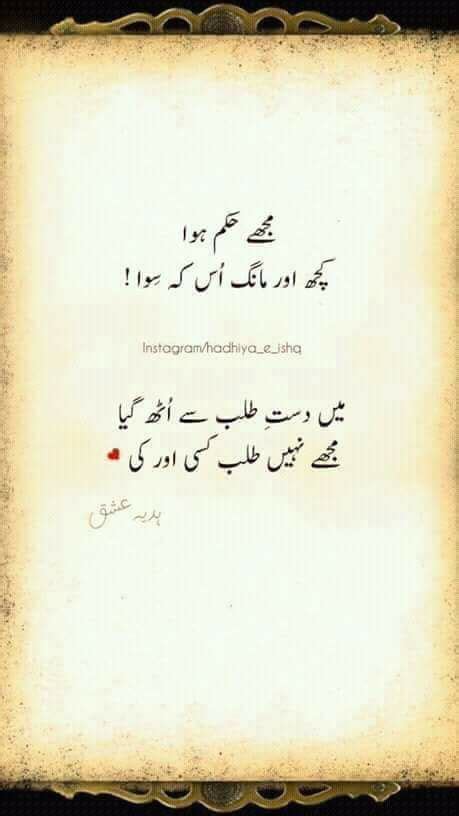 مجھے حکم ہوا
کچھ اور مانگ اُس کہ سِوا !
Instagram/hadhiya_e_ishq
میں دستِ طلب سے اُٹھ گیا
مجھے نہیں طلب کسی اور کی
ہدیہ عشق